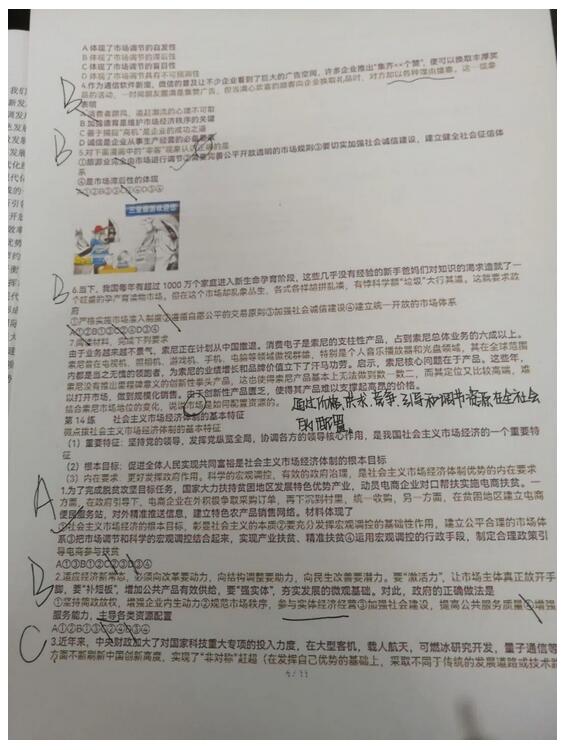 A 体现了市场调节的自发性
B 体现了市场调节的滞后性
C 体现了市场调节的盲目性
D 体现了市场调节具有不可预测性
B
4.作为通信软件新宠，微信的普及让不少企业看到了巨大的广告空间，许多企业推出“集齐××个赞”，便可以换取丰厚奖
品的活动，一时间朋友圈满是集赞广告，但当满心欢喜的顾客向企业换取礼品时，对方却以各种理由搪塞。这一现象
表明
A 消费者跟风、追赶潮流的心理不可取
B 加强德育是维护市场经济秩序的关键
C 善于捕捉“商机”是企业的成功之道
D 诚信是企业从事生产经营的必备要素
B
5.对下面漫画中的“宰客”现象认识正确的是
①旅游业完全由市场进行调节②需要完善公平开放透明的市场规则③要切实加强社会诚信建设，建立健全社会征信体
系
④是市场滞后性的体现
B
6.当下，我国每年有超过 1000 万个家庭进入新生命孕育阶段，这些几乎没有经验的新手爸妈们对知识的渴求造就了一
个旺盛的孕产育读物市场，但在这个市场却乱象丛生，各式各样胡拼乱凑、有悖科学额“垃圾”大行其道，这就要求政
府
①严格实施市场准入制度②遵循自愿公平的交易原则③加强社会诚信建设④建立统一开放的市场体系
7.阅读材料，完成下列要求
由于业务越来越不景气，索尼正在计划从中国撤退。消费电子是索尼的支柱性产品，占到索尼总体业务的六成以上。
索尼曾在电视机、照相机、游戏机、手机、电脑等领域傲视群雄，特别是个人音乐播放器和光盘领域，其在全球范围
内都是当之无愧的领跑者，为索尼的业绩增长和品牌价值立下了汗马功劳。启示，索尼核心问题在于产品。这些年，
索尼没有推出里程碑意义的创新性拳头产品，这也使得索尼产品基本上无法做到数一数二，而其定位又比较高端，难
以打开市场，做到规模化销售。由于创新性产品匮乏，使得其产品难以支撑起高昂的价格。
结合索尼市场地位的变化，说说市场是如何配置资源的。
通过价格、供求、竞争，引导和调节资源在全社会
的配置。
第 14 练 社会主义市场经济体制的基本特征
微点拨社会主义市场经济体制的基本特征
（1）重要特征：坚持党的领导，发挥党纵览全局，协调各方的领导核心作用，是我国社会主义市场经济的一个重要特
征
（2）根本目标：促进全体人民实现共同富裕是社会主义市场经济体制的根本目标
（3）内在要求：更好发挥政府作用。科学的宏观调控，有效的政府治理，是社会主义市场经济体制优势的内在要求
A
1.为了完成脱贫攻坚目标任务，国家大力扶持贫困地区发展特色优势产业，动员电商企业对口帮扶实施电商扶贫。一
方面，在政府引导下，电商企业在外积极争取采购订单，再下沉到村里，统一收购，另一方面，在贫困地区建立电商
便民服务站，对外精准推送信息，建立特色农产品销售网络。材料体现了
①社会主义市场经济的根本目标，彰显社会主义的本质②要充分发挥宏观调控的基础性作用，建立公平合理的市场体
系③把市场调节和科学的宏观调控结合起来，实现产业扶贫、精准扶贫④运用宏观调控的行政手段，制定合理政策引
导电商参与扶贫
A①③B①③C②③D③④
B
2.适应经济新常态，必须向改革要动力，向结构调整要助力，向民生改善要潜力。要“激活力”，让市场主体真正放开手
脚，要“补短板”，增加公共产品有效供给，要“强实体”，夯实发展的微观基础。对此，政府的正确做法是
①坚持简政放权，增强企业内生动力②规范市场秩序，参与实体经济经营③加强社会建设，提高公共服务质量④增强
服务能力，主导各类资源配置
C
3.近年来，中央财政加大了对国家科技重大专项的投入力度，在大型客机，载人航天，可燃冰研究开发，量子通信等
方面不断刷新中国创新高度，实现了“非对称”赶超（在发挥自己优势的基础上，采取不同于传统的发展道路或技术路